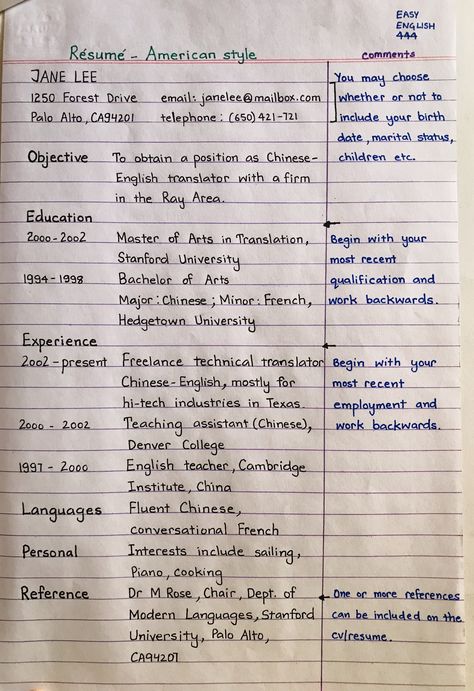 EASY
ENGLISH
444
Résumé - American style
comments
JANE LEE
1250 Forest Drive email: janelee@mailbox.com
Palo Alto, CA94201 telephone: (650) 421-721
You may choose
whether or not to
include your birth
date, marital status,
children etc.
Objective To obtain a position as Chinese-
English translator with a firm
in the Ray Area.
Education
2000-2002 Master of Arts in Translation,
Stanford University
1994-1998 Bachelor of Arts
Major: Chinese; Minor: French,
Hedgetown University
Begin with your
most recent
qualification and
work backwards.
Experience
2002-present Freelance technical translator
Chinese-English, mostly for
hi-tech industries in Texas.
2000-2002 Teaching assistant (Chinese),
Denver College
1997-2000 English teacher, Cambridge
Institute, China
Begin with your
most recent
employment and
work backwards.
Languages Fluent Chinese,
conversational French
Personal Interests include sailing,
Piano, cooking
Reference Dr M Rose, Chair, Dept. of
Modern Languages, Stanford
University, Palo Alto,
CA94201
One or more references
can be included on the
cv/resume.